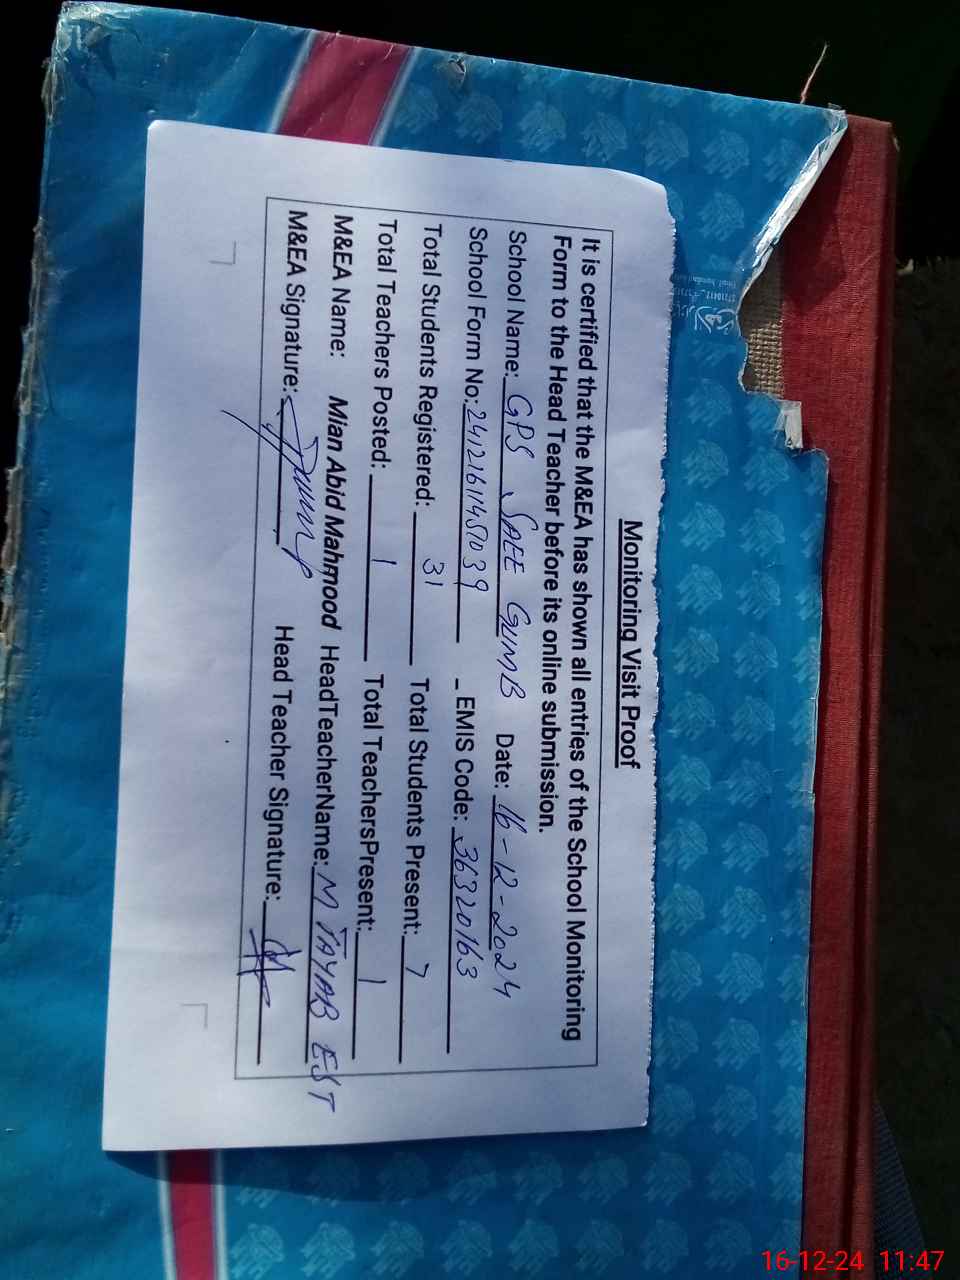 Monitoring Visit Proof
It is certified that the M&EA has shown all entries of the School Monitoring
Form to the Head Teacher before its online submission.
School Name: GPS SAEE GUMB Date: 16-12-2024
School Form No: 24121611451039 _EMIS Code: 36320163
Total Students Registered: 31 Total Students Present: 7
Total Teachers Posted: 1 Total TeachersPresent: 1
M&EA Name: Mian Abid Mahmood HeadTeacherName: M TAYAB EST
M&EA Signature: Head Teacher Signature:
16-12-24 11:47